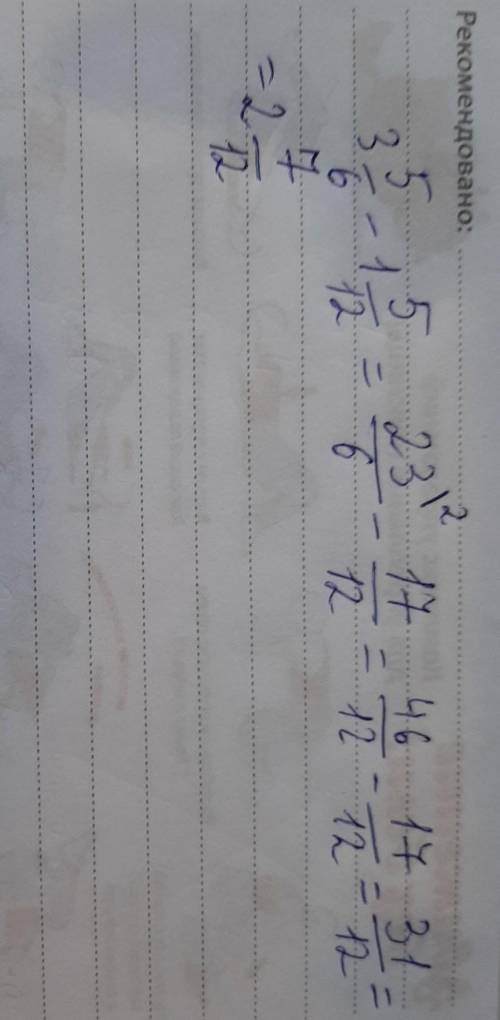 Рекомендовано:
3 5/6 - 1 5/12 = 23\2/6 - 17/12 = 46/12 - 17/12 = 31/12 =
= 2 7/12